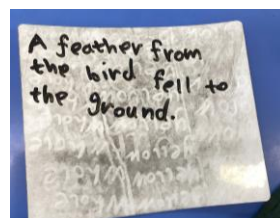 A feather from
the bird fell to
the ground.